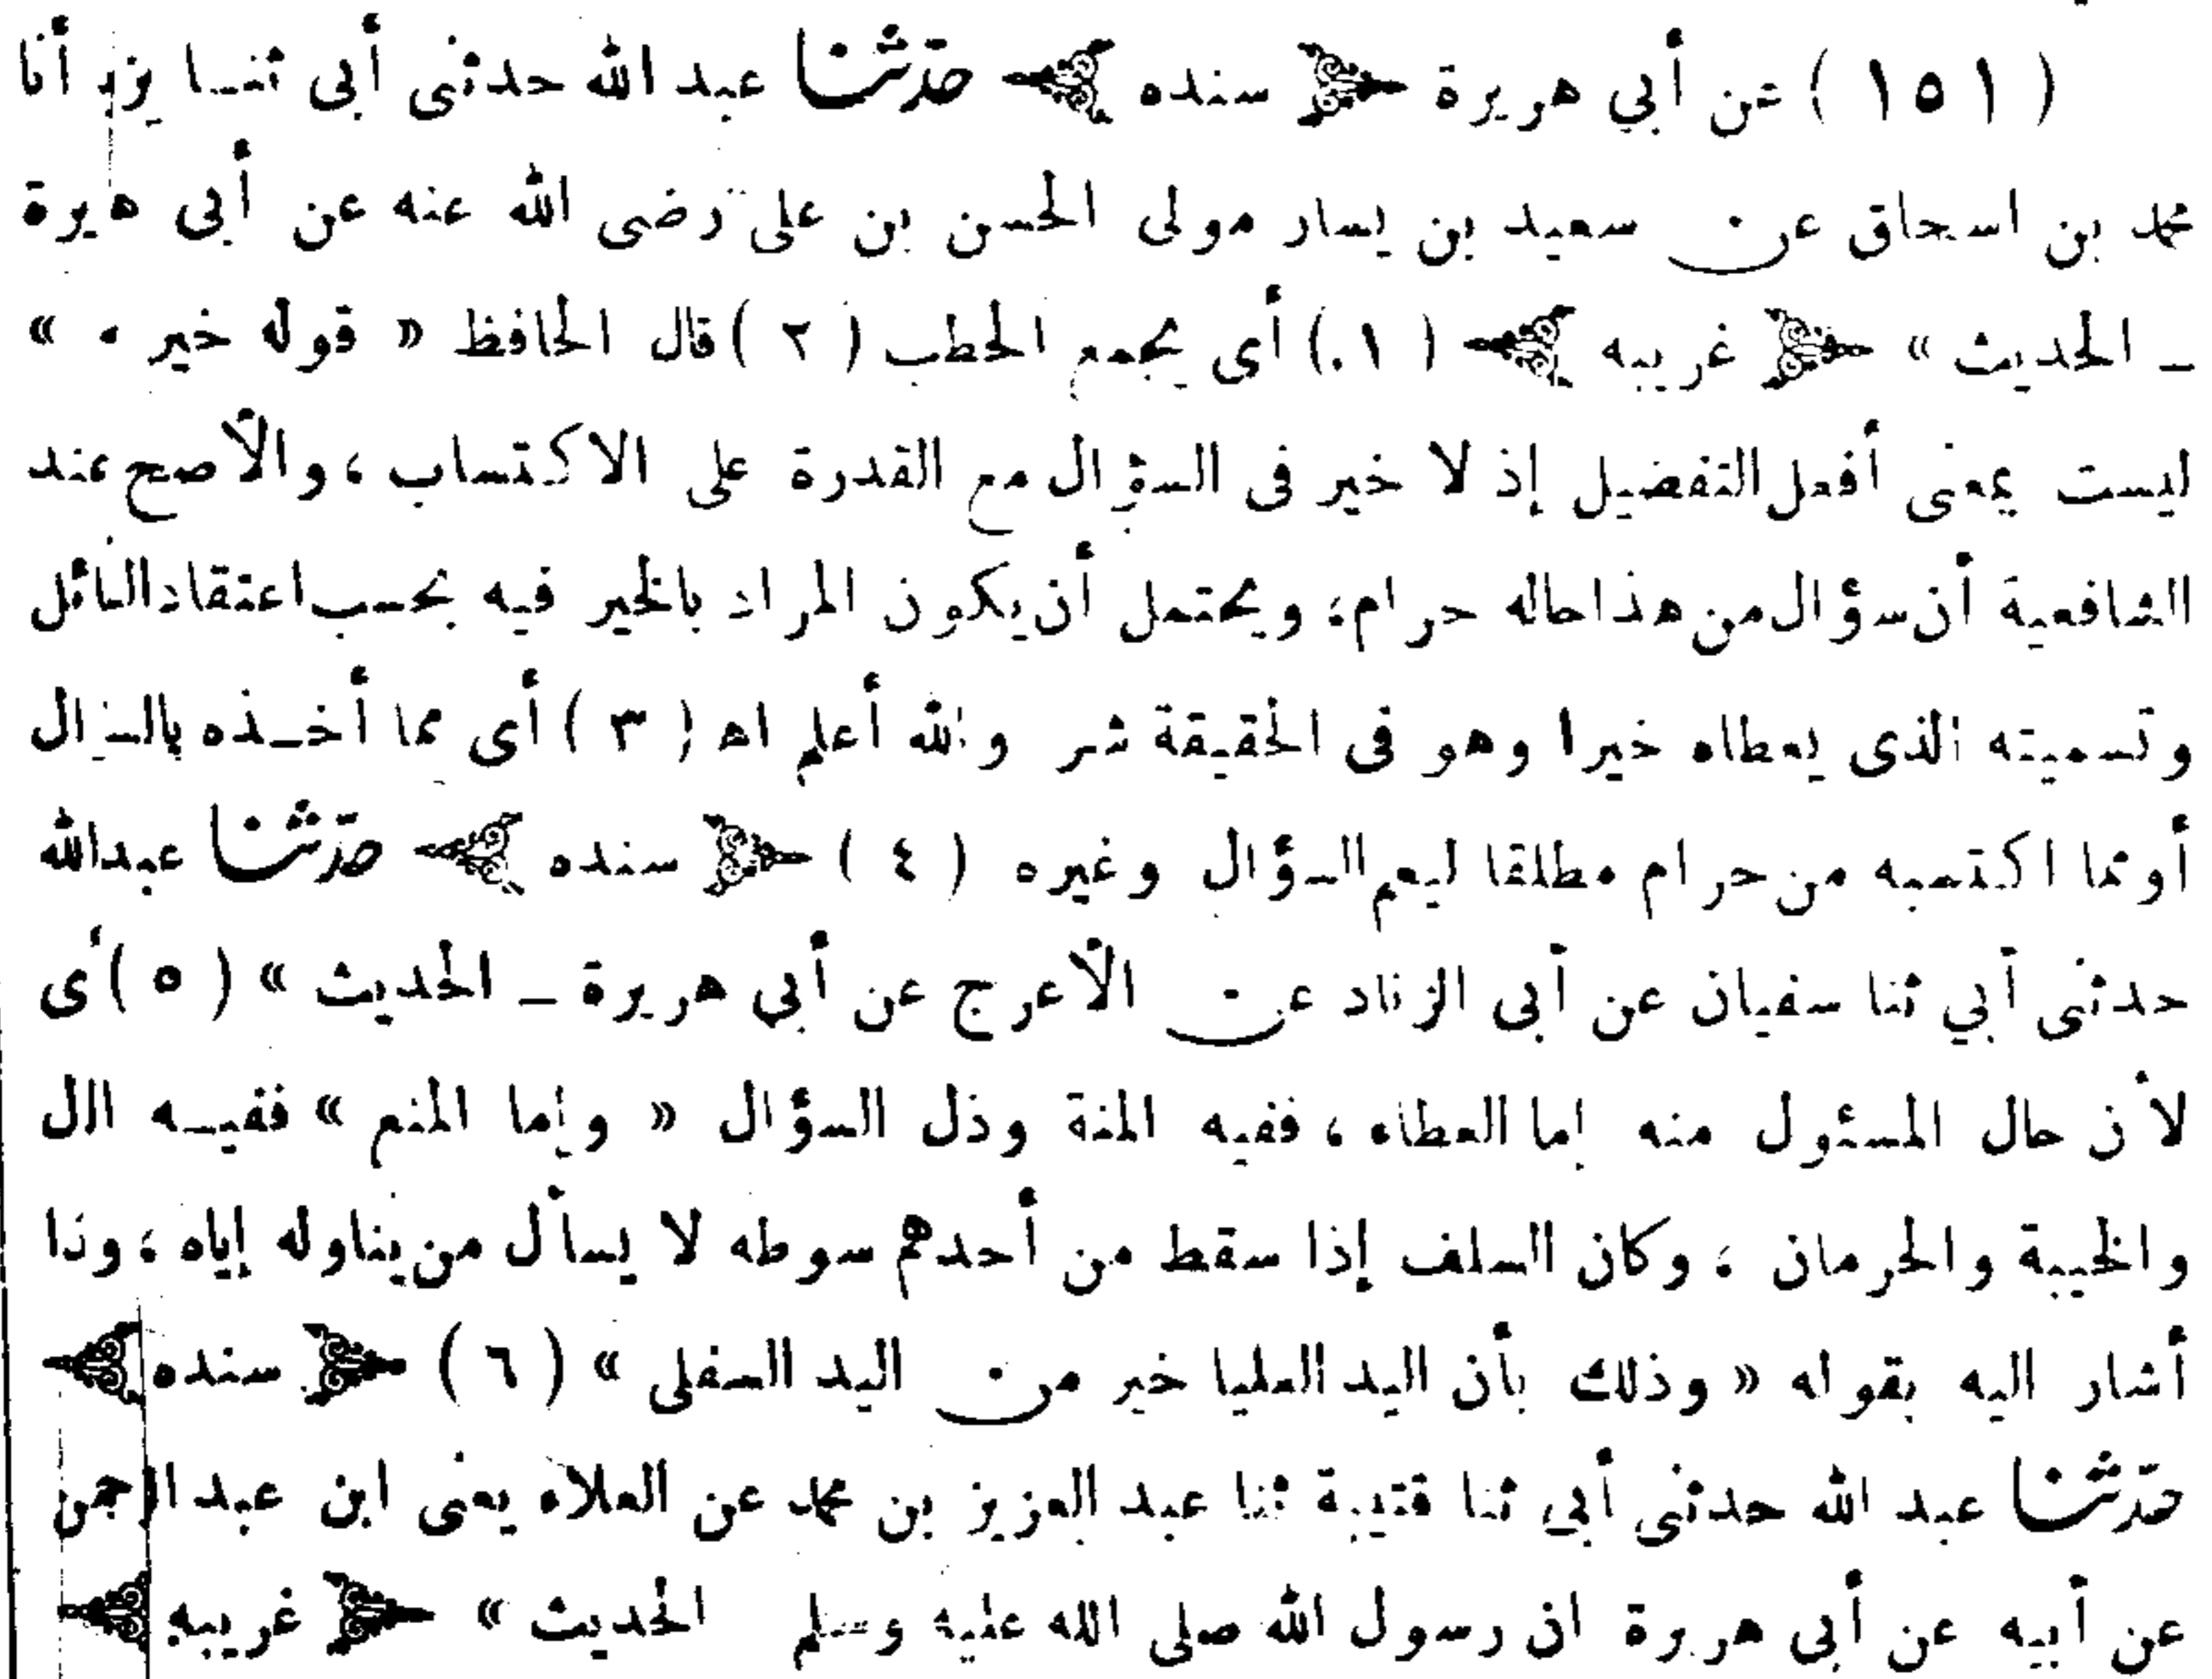 ( ١٥١ ) عن أبي هريرة ﴿ سنده ﴾ حدّثنا عبد الله حدثنى أبى ثنا يزيد أنا
محمد بن اسحاق عن سعيد بن يسار مولى الحسن بن على رضى الله عنه عن أبى هريرة
ــ الحديث » ﴿ غريبه ﴾ ( ١ ) أى يجمع الحطب ( ٢ ) قال الحافظ « قوله خير له »
ليست بمعنى أفعل التفضيل إذ لا خير فى السؤال مع القدرة على الاكتساب ، والأصح عند
الشافعية أن سؤال من هذا حاله حرام ، ويحتمل أن يكون المراد بالخير فيه بحسب اعتقاد السائل
وتسميته الذى يعطاه خيرا وهو فى الحقيقة شر والله أعلم اه ( ٣ ) أى مما أخـذه بالسؤال
أو مما اكتسبه من حرام مطلقا ليعم السؤال وغيره ( ٤ ) ﴿ سنده ﴾ حدّثنا عبدالله
حدثنى أبي ثنا سفيان عن أبى الزناد عن الأعرج عن أبي هريرة ــ الحديث » ( ٥ ) أى
لأن حال المسئول منه إما العطاء ، ففيه المنة وذل السؤال « وإما المنع » ففيـه الذل
والخيبة والحرمان ، وكان السلف إذا سقط من أحدهم سوطه لا يسأل من يناوله إياه ، وذا
أشار اليه بقوله « وذلك بأن اليد العليا خير من اليد السفلى » ( ٦ ) ﴿ سنده ﴾
حدّثنا عبد الله حدثنى أبي ثنا قتيبة ثنا عبد العزيز بن محمد عن العلاء يعنى ابن عبد الرحمن
عن أبيه عن أبى هريرة ان رسول الله صلى الله عليه وسلم الحديث » ﴿ غريبه ﴾